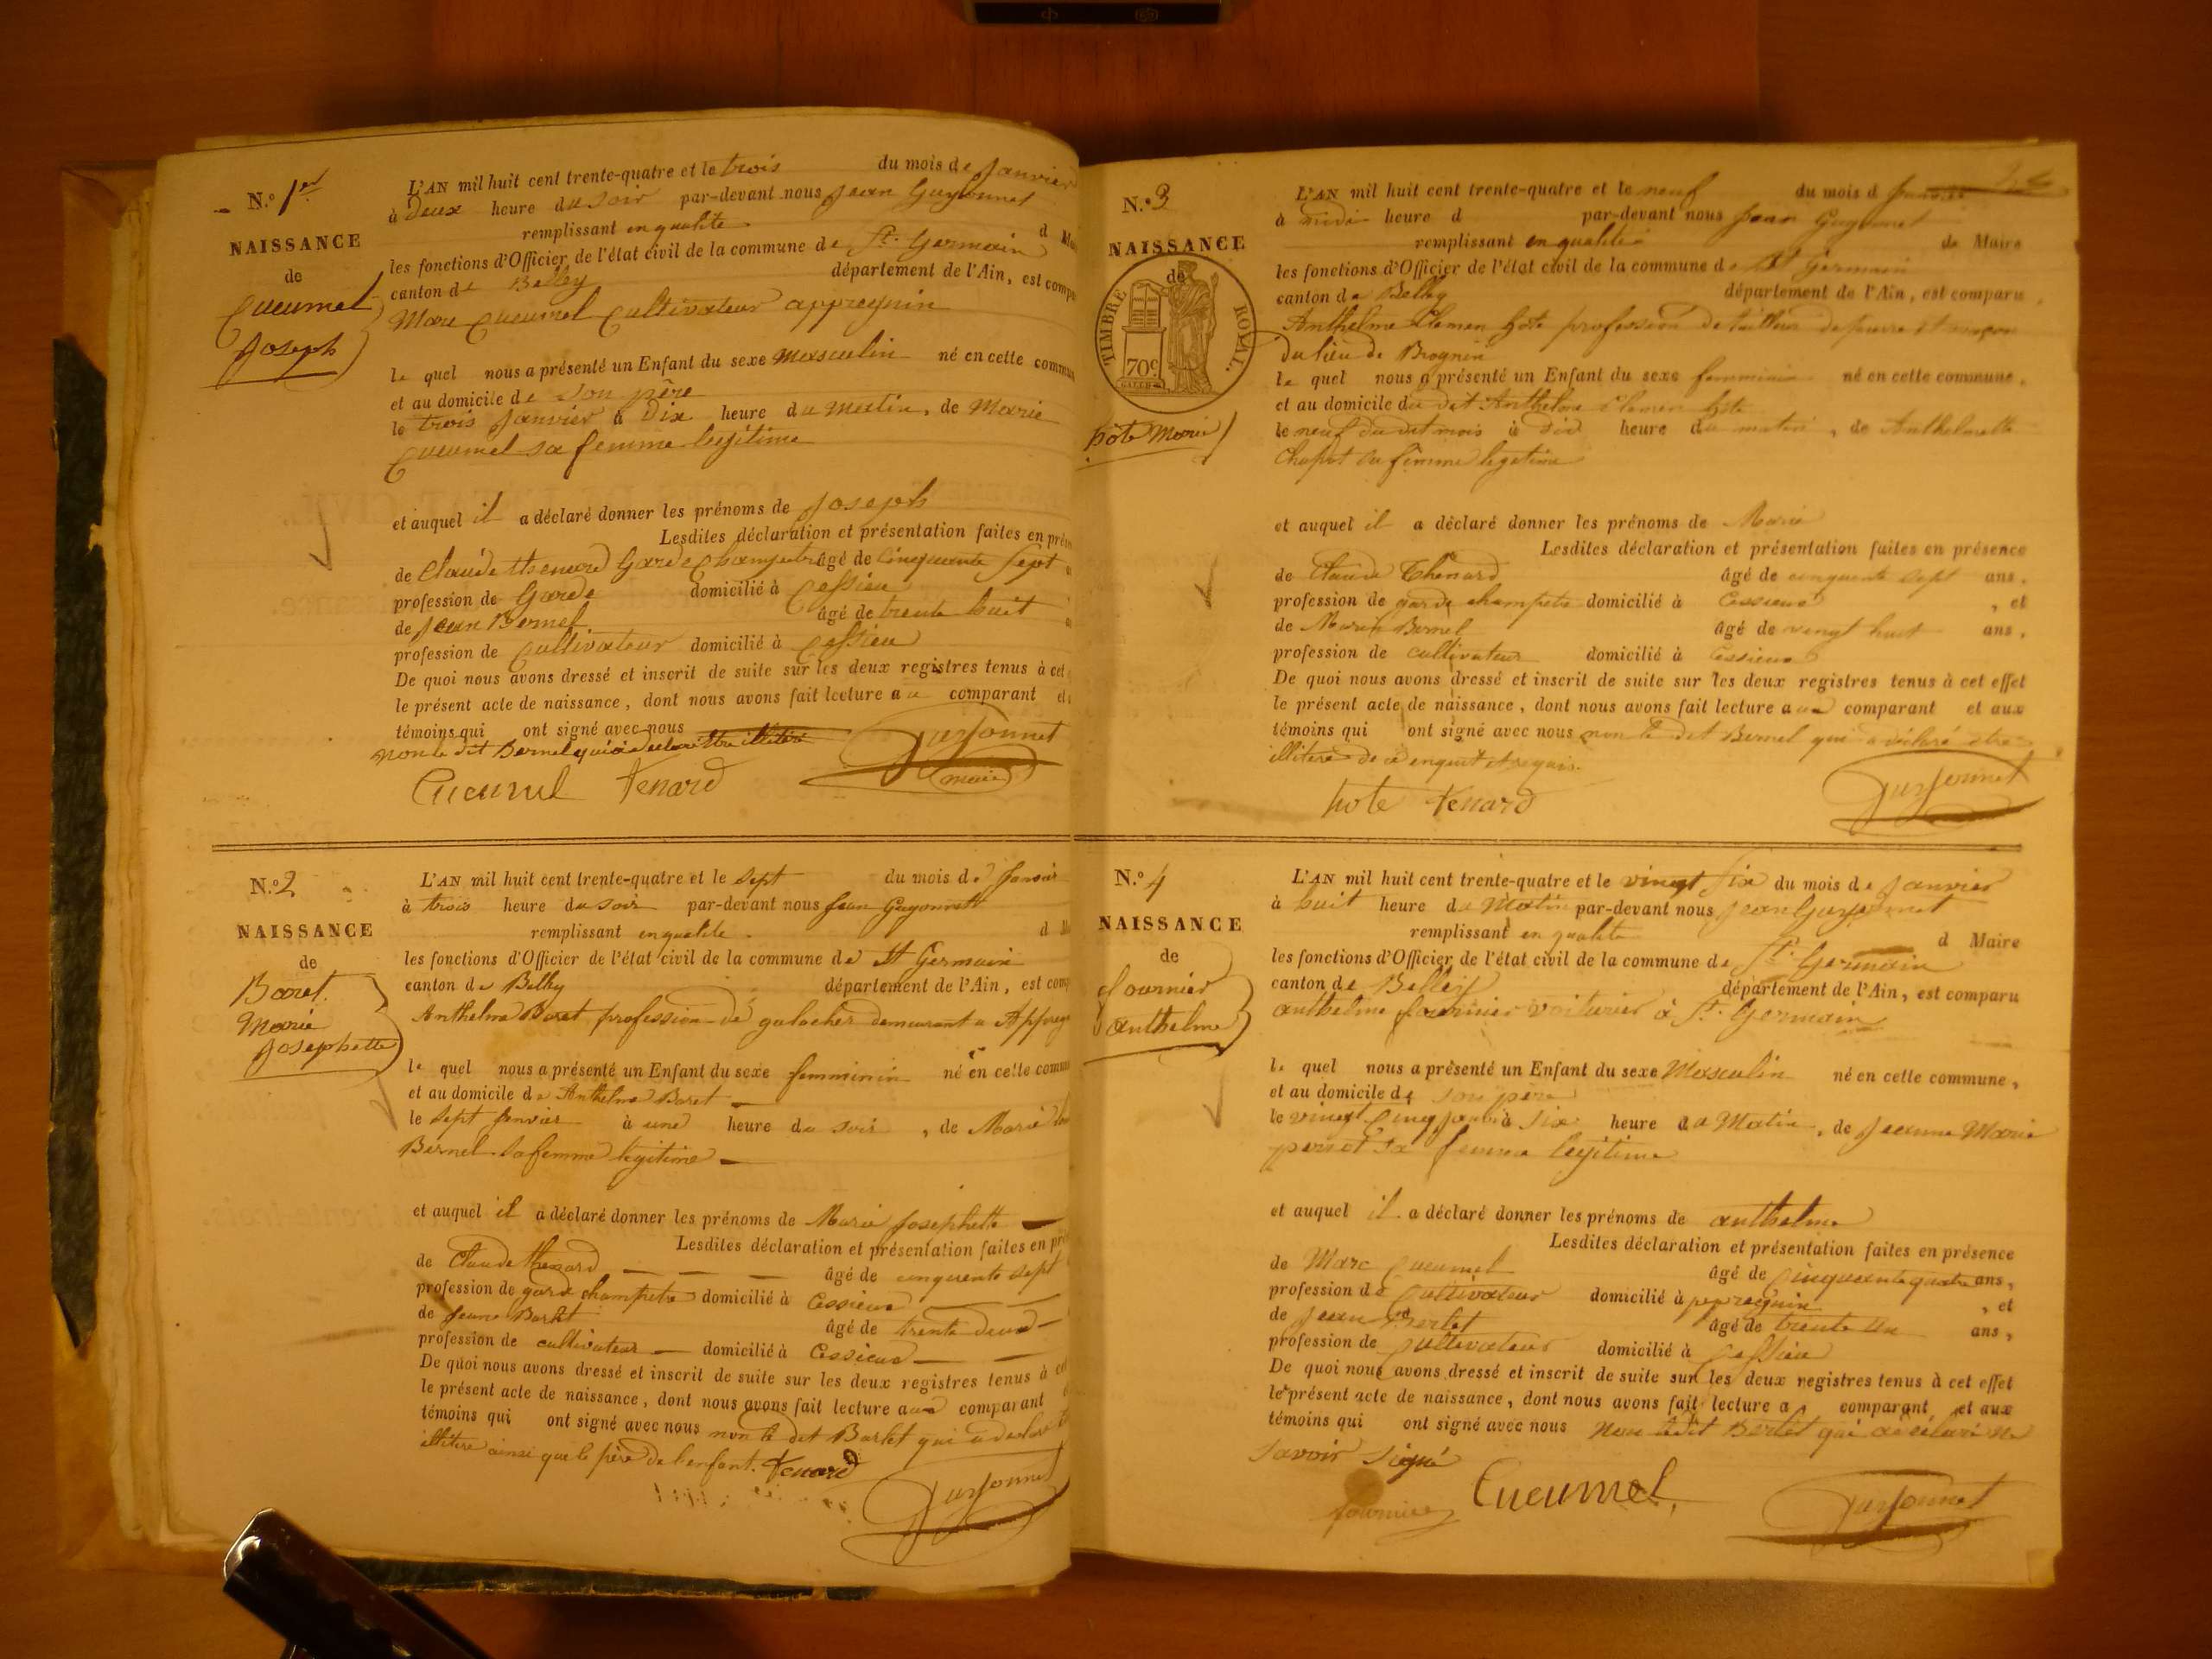 N.º 1er
NAISSANCE
de
Cucumel
Joseph
L'AN mil huit cent trente-quatre et le trois du mois de Janvier
à Deux heure du soir par-devant nous Jean Guyonnet
remplissant en qualité d
les fonctions d'Officier de l'état civil de la commune de St. Germain
canton de Belley département de l'Ain, est
Marc Cucumel Cultivateur appregnin
le quel nous a présenté un Enfant du sexe Masculin né en cette
et au domicile de Son père
le trois Janvier à Dix heure du Matin, de Marie
Cucumel sa femme legitime
et auquel il a déclaré donner les prénoms de Joseph
Lesdites déclaration et présentation faites en
de Claude thenard Garde Champetre âgé de Cinquante Sept
profession de Garde domicilié à Cessieu
de Jean Bernel âgé de trente huit
profession de Cultivateur domicilié à Cessieu
De quoi nous avons dressé et inscrit de suite sur les deux registres tenus à cet
le présent acte de naissance, dont nous avons fait lecture au comparant et
témoins qui ont signé avec nous
non le dit Bernel qui a declaré etre illitéré
Cucumel tenard
Guyonnet
maire
N.º 2
NAISSANCE
de
Baret
Marie
Josephette
L'AN mil huit cent trente-quatre et le sept du mois de Janvier
à trois heure du soir par-devant nous Jean Guyonnet
remplissant en qualité d
les fonctions d'Officier de l'état civil de la commune de St Germain
canton de Belley département de l'Ain, est
Anthelme Baret profession de galocher demeurant a
le quel nous a présenté un Enfant du sexe femminin né en cette
et au domicile de Anthelme Baret
le sept Janvier à une heure du soir, de Marie
Bernel sa femme legitime
et auquel il a déclaré donner les prénoms de Marie Josephette
Lesdites déclaration et présentation faites en
de Claude thenard âgé de cinquente sept
profession de garde champetre domicilié à Cessieux
de Jean âgé de trente deux
profession de cultivateur domicilié à Cessieux
De quoi nous avons dressé et inscrit de suite sur les deux registres tenus à
le présent acte de naissance, dont nous avons fait lecture aux comparant
témoins qui ont signé avec nous non le dit qui a declaré
illitere ainsi que le père de l'enfant. tenard
Guyonnet
N.º 3
NAISSANCE
de
TIMBRE ROYAL.
70c
hôte Marie
L'AN mil huit cent trente-quatre et le neuf du mois d Janvier
à midi heure d par-devant nous Jean Guyonnet
remplissant en qualité de Maire
les fonctions d'Officier de l'état civil de la commune de St Germain
canton de Belley département de l'Ain, est comparu
Anthelme Clemen hote profession de tailleur de pierre et maçon
du lieu de Brognin
le quel nous a présenté un Enfant du sexe femminin né en cette commune,
et au domicile du dit Anthelme Clemen hote
le neuf du dit mois à dix heure du matin, de Anthelmette
sa femme legetime
et auquel il a déclaré donner les prénoms de Marie
Lesdites déclaration et présentation faites en présence
de Claude Thenard âgé de cinquente sept ans,
profession de garde champetre domicilié à Cessieux, et
de Marin Bernel âgé de vingt huit ans,
profession de cultivateur domicilié à Cessieux
De quoi nous avons dressé et inscrit de suite sur les deux registres tenus à cet effet
le présent acte de naissance, dont nous avons fait lecture aux comparant et aux
témoins qui ont signé avec nous non le dit Bernel qui a déclaré etre
illiteré de ce enquit et requis.
hote tenard
Guyonnet
N.º 4
NAISSANCE
de
fournier
anthelme
L'AN mil huit cent trente-quatre et le vingt six du mois de Janvier
à huit heure du Matin par-devant nous Jean Guyonnet
remplissant en qualité d Maire
les fonctions d'Officier de l'état civil de la commune de St. Germain
canton de Belley département de l'Ain, est comparu
anthelme fournier voiturier à St. Germain
le quel nous a présenté un Enfant du sexe Masculin né en cette commune,
et au domicile de son père
le vingt Cinq Janvier à six heure du Matin, de Jeanne Marie
sa femme legitime
et auquel il a déclaré donner les prénoms de anthelme
Lesdites déclaration et présentation faites en présence
de Marc Cucumel âgé de Cinquante quatre ans,
profession de Cultivateur domicilié à, et
de Jean Berlet âgé de trente un ans,
profession de Cultivateur domicilié à Cessieu
De quoi nous avons dressé et inscrit de suite sur les deux registres tenus à cet effet
le présent acte de naissance, dont nous avons fait lecture a comparant et aux
témoins qui ont signé avec nous Non ledit Berlet qui a déclaré ne
savoir signé
fournier Cucumel
Guyonnet